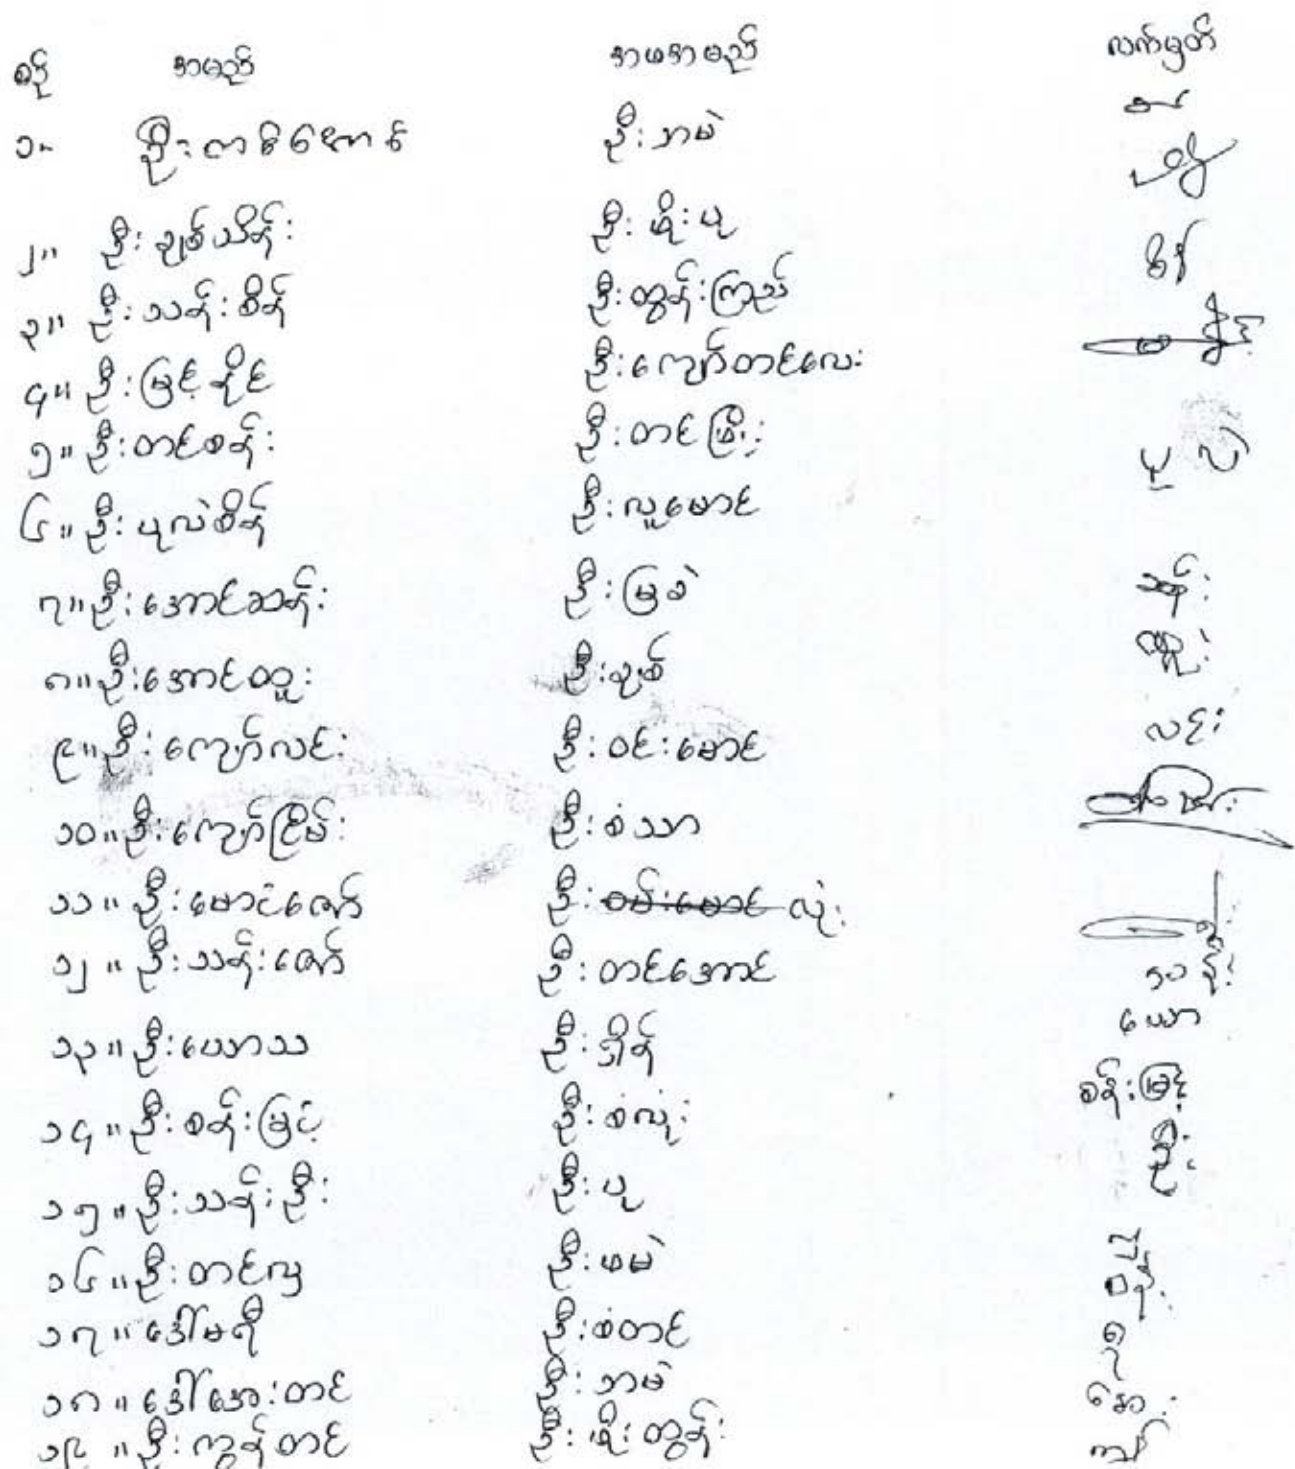 စဉ် အမည် အဖအမည် လက်မှတ်
၁။ ဦး ဦးဘမဲ
၂။ ဦးချစ်သိန်း ဦးဖိုးပု
၃။ ဦးသန်းစိန် ဦးထွန်းကြည် စိန်
၄။ ဦးမြင့်နိုင် ဦးကျော်တင်လေး
၅။ ဦးတင်စန်း ဦးတင်မြိုး
၆။ ဦးပုလဲစိန် ဦးလူမောင် ပု လဲ
၇။ ဦးအောင်ဆန်း ဦးမြခဲ ဆန်း
၈။ ဦးအောင်ထူး ဦးချစ် ထူး
၉။ ဦးကျော်လင်း ဦးဝင်းမောင် လင်း
၁၀။ ဦးကျော်ငြိမ်း ဦးစံသာ
၁၁။ ဦးမောင်ဇော် ဦးစမ်းမောင် လုံး
၁၂။ ဦးသန်းဇော် ဦးတင်အောင် သန်း
၁၃။ ဦးယောသ ဦးရှိန် ယော
၁၄။ ဦးစန်းမြင့် ဦးစံလုံး စန်းမြင့်
၁၅။ ဦးသန်းဦး ဦးပု ဦး
၁၆။ ဦးတင်လှ ဦးဖမဲ
၁၇။ ဒေါ်မရီ ဦးစံတင် ရီ
၁၈။ ဒေါ်အေးတင် ဦးဘမဲ အေး
၁၉။ ဦးကွန်တင် ဦးဖိုးထွန်း